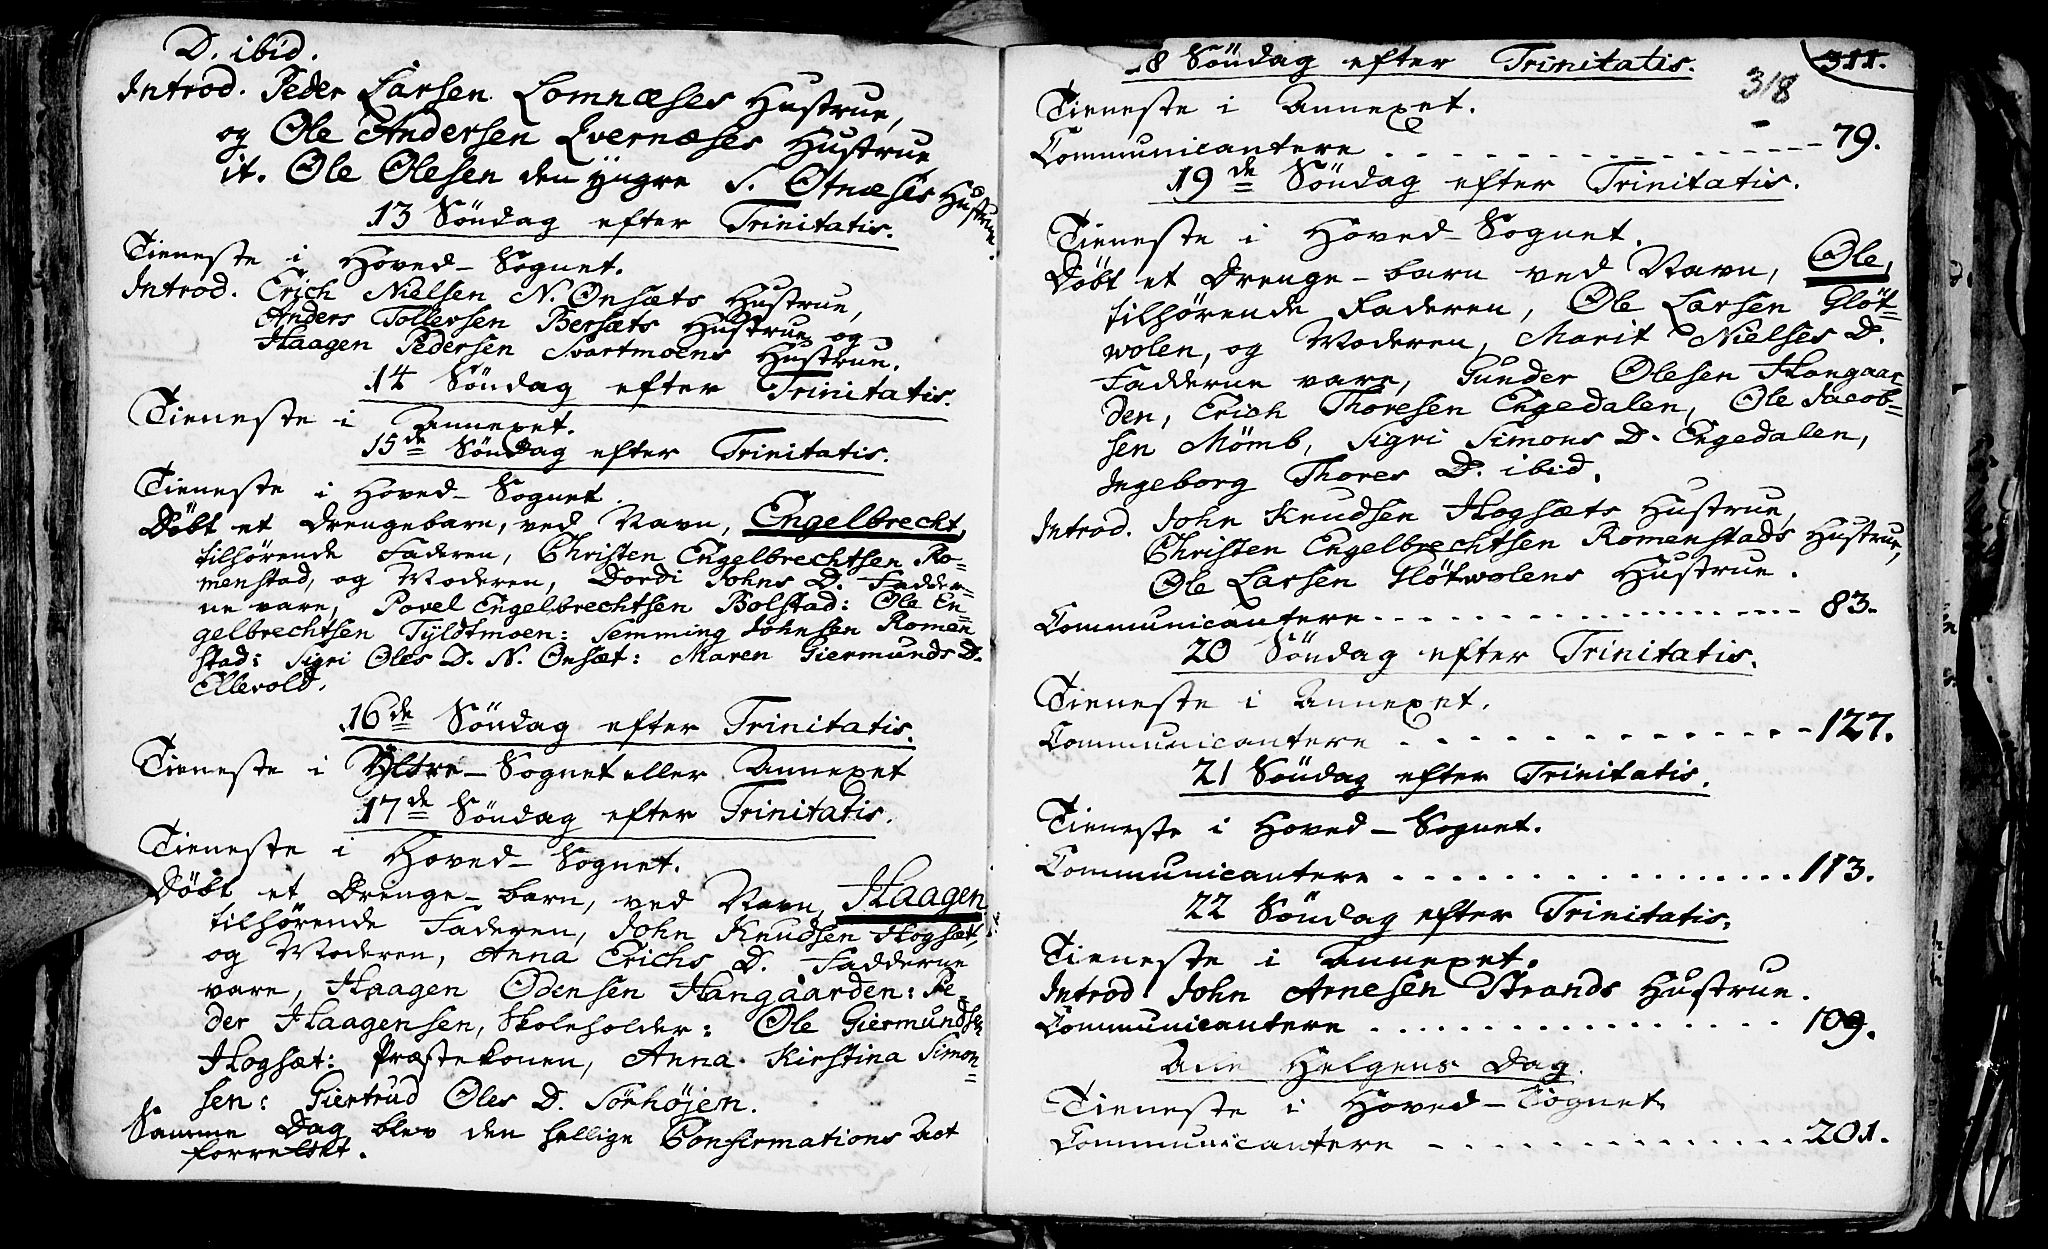 D. ibid.
Introd. Peder Larsen Lomnæses Hustrue,
og Ole Andersen Qvernæses Hustrue
it. Ole Olesen den yngre S. Otnæses Hustrue.
13 Söndag efter Trinitatis.
Tieneste i Hoved-Sognet.
Introd. Erich Nielsen N. Onsæts Hustrue,
Anders Tollersen Bersæts Hustrue, og
Haagen Pedersen Svartmoens Hustrue.
14 Söndag efter Trinitatis.
Tieneste i Annexet.
15de Söndag efter Trinitatis.
Tieneste i Hoved-Sognet.
Döbt et Drengebarn, ved Navn, Engelbrecht,
tilhörende Faderen, Christen Engelbrechtsen Ro=
menstad, og Moderen, Dordi Johns D. Fadder=
ne vare, Povel Engelbrechtsen Bolstad: Ole En=
gelbrechtsen Tyldtmoen: Semming Johnsen Romen
stad: Sigri Oles D. N. Onsæt: Maren Giermunds D.
Ellevold.
16de Söndag efter Trinitatis.
Tieneste i Yttre-Sognet eller Annexet
17de Söndag efter Trinitatis.
Tieneste i Hoved-Sognet.
Döbt et Drenge-barn, ved Navn, Haagen
tilhörende Faderen, John Knudsen Hogsæt,
og Moderen, Anna Erichs D. Fadderne
vare, Haagen Odensen Hangaarden: Pe=
der Haagensen, Skoleholder: Ole Giermundsen
Hogsæt: Præstekonen, Anna Kirstina Simon=
sen: Giertrud Oles D. Sörhöjen.
Samme Dag blev den hellige Confirmations Act
forrettet.
18 Söndag efter Trinitatis.
311.
318
Tieneste i Annexet.
Communicantere - - - 79.
19de Söndag efter Trinitatis.
Tieneste i Hoved-Sognet.
Döbt et Drenge-barn ved Navn, Ole,
tilhörende Faderen, Ole Larsen Glöt=
wolen, og Moderen, Marit Nielses D.
Fadderne vare, Gunder Olesen Hangaar=
den, Erich Thoresen Engedalen, Ole Jacob=
sen Mömb, Sigri Simons D. Engedalen,
Ingeborg Thores D. ibid.
Introd. John Knudsen Hogsæts Hustrue,
Christen Engelbrechtsen Romenstads Hustrue,
Ole Larsen Glötwolens Hustrue.
Communicantere - - - 83.
20 Söndag efter Trinitatis.
Tieneste i Annexet.
Communicantere - - - 127.
21 Söndag efter Trinitatis.
Tieneste i Hoved-Sognet.
Communicantere - - - 113.
22 Söndag efter Trinitatis.
Tieneste i Annexet.
Introd John Arnesen Strands Hustrue.
Communicantere - - - 109.
Alle Helgens Dag.
Tieneste i Hoved-Sognet.
Communicantere - - - 201.